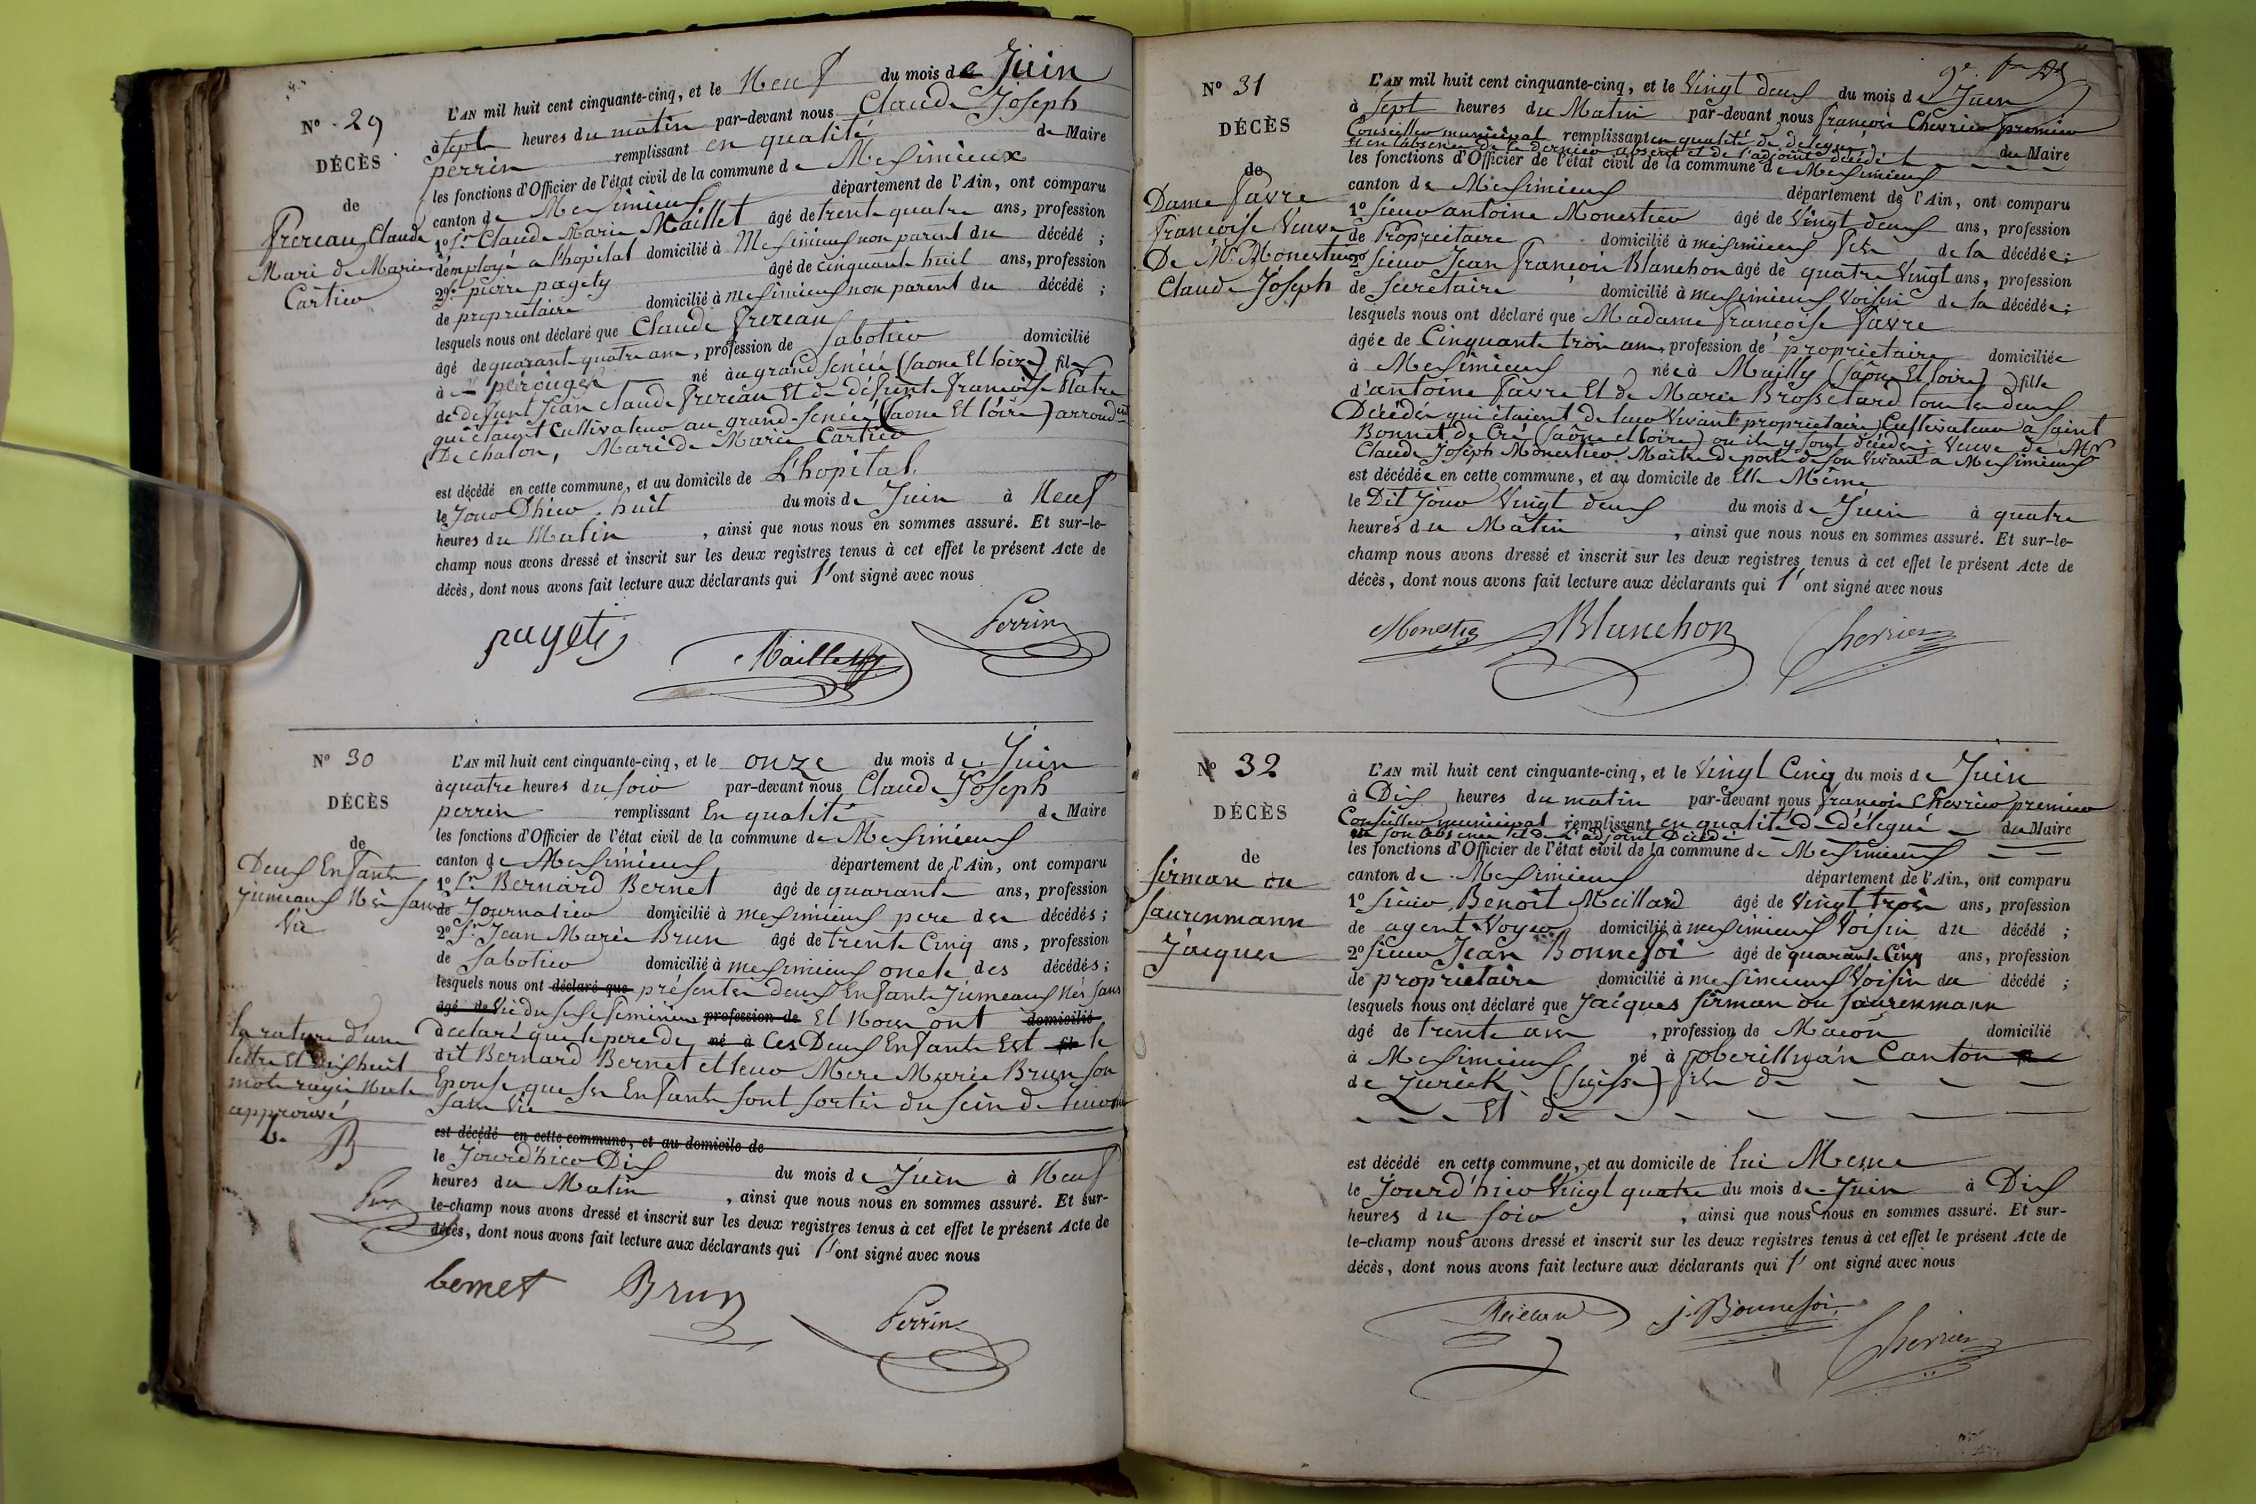 N° 29
DÉCÈS
de
Frereau Claude
Mari de Marie
Cartier
L'AN mil huit cent cinquante-cinq, et le Neuf du mois de Juin
à sept heures du matin par-devant nous Claude Joseph
perrin remplissant en qualité de Maire
les fonctions d'Officier de l'état civil de la commune de Meximieux
canton de Meximieux département de l'Ain, ont comparu
1° Sr Claude Marie Maillet âgé de trente quatre ans, profession
d'employé a l'hopital domicilié à Meximieux non parent du décédé ;
2° Sr pierre pagety âgé de cinquante huit ans, profession
de propriétaire domicilié à meximieux non parent du décédé ;
lesquels nous ont déclaré que Claude Frereau
âgé de quarante quatre ans, profession de Sabotier domicilié
à perouges né au grand Senécé (Saone Et loire) fils
de defunt Jean Claude Frereau Et de défunte Françoise Blatre
qui étaient Cultivateur au grand Senécé (Saone Et loire) arrond
De Chalon, Mari de Marie Cartier
est décédé en cette commune, et au domicile de L'hopital
le Jour D'hier huit du mois de Juin à Neuf
heures du Matin, ainsi que nous nous en sommes assuré. Et sur-le-
champ nous avons dressé et inscrit sur les deux registres tenus à cet effet le présent Acte de
décès, dont nous avons fait lecture aux déclarants qui l'ont signé avec nous
pagety Maillet Perrin
N° 30
DÉCÈS
de
Deux Enfants
jumeaux Nés sans
Vie
la rature d'une
lettre Et dix huit
mots rayés Nuls
approuvé
B. B
Perrin
L'AN mil huit cent cinquante-cinq, et le onze du mois de Juin
à quatre heures du soir par-devant nous Claude Joseph
perrin remplissant En qualité de Maire
les fonctions d'Officier de l'état civil de la commune de Meximieux
canton de Meximieux département de l'Ain, ont comparu
1° Sr Bernard Bernet âgé de quarante ans, profession
de Journalier domicilié à meximieux pere des décédés ;
2° Sr Jean Marie Brun âgé de trente Cinq ans, profession
de Sabotier domicilié à meximieux oncle des décédés ;
lesquels nous ont déclaré que présenter deux Enfants Jumeaux Nés sans
âgé de Vie du sexe Feminin profession de Et Nous ont domicilié
declaré que le pere de né à Ces Deux Enfants Est fils le
dit Bernard Bernet et leur Mere Marie Brun son
Epouse que ses Enfants sont sortis du sein de leur
sans Vie
est décédé en cette commune, et au domicile de
le Jourd'hier Dix du mois de Juin à Neuf
heures du Matin, ainsi que nous nous en sommes assuré. Et sur-
le-champ nous avons dressé et inscrit sur les deux registres tenus à cet effet le présent Acte de
décès, dont nous avons fait lecture aux déclarants qui l'ont signé avec nous
bernet Brun Perrin
N° 31
DÉCÈS
de
Dame Favre
Françoise Veuve
De Mr Monestier
Claude Joseph
L'AN mil huit cent cinquante-cinq, et le Vingt deux du mois de Juin
à Sept heures du Matin par-devant nous François Chevrier premier
Conseiller municipal remplissant en qualité de délégué du Maire
et en l'absence de ce dernier absent et de l'adjoint décédé
les fonctions d'Officier de l'état civil de la commune de Meximieux
canton de Meximieux département de l'Ain, ont comparu
1° Sieur antoine Monestier âgé de Vingt deux ans, profession
de Propriétaire domicilié à meximieux Fils de la décédée ;
2° Sieur Jean François Blanchon âgé de quatre Vingt ans, profession
de Secretaire domicilié à meximieux Voisin de la décédée ;
lesquels nous ont déclaré que Madame françoise Favre
âgée de Cinquante trois ans, profession de propriétaire domiciliée
à Meximieux née à Mailly (Saône Et loire) fille
d'antoine Favre Et de Marie Brossetard tous les deux
Décédés qui étaient de leur Vivant propriétaires Cultivateur à Saint
Bonnet de Cré (Saône et loire) ou ils y sont décédés ; Veuve de Mr
Claude Joseph Monestier Maitre de poste de son Vivant a Meximieux
est décédée en cette commune, et au domicile de Elle Même
le Dit Jour Vingt deux du mois de Juin à quatre
heures du Matin, ainsi que nous nous en sommes assuré. Et sur-le-
champ nous avons dressé et inscrit sur les deux registres tenus à cet effet le présent Acte de
décès, dont nous avons fait lecture aux déclarants qui l'ont signé avec nous
Monestier Blanchon Chevrier
N° 32
DÉCÈS
de
Sirman ou
Saurenmann
Jacques
L'AN mil huit cent cinquante-cinq, et le Vingt Cinq du mois de Juin
à Dix heures du matin par-devant nous François Chevrier premier
Conseiller municipal remplissant en qualité de délégué du Maire
en son absence et de l'adjoint Décédé
les fonctions d'Officier de l'état civil de la commune de Meximieux
canton de Meximieux département de l'Ain, ont comparu
1° Sieur Benoit Meillard âgé de Vingt trois ans, profession
de agent Voyer domicilié à meximieux Voisin du décédé ;
2° Sieur Jean Bonnefoi âgé de quarante Cinq ans, profession
de propriétaire domicilié à meximieux Voisin du décédé ;
lesquels nous ont déclaré que Jacques Sirman ou Saurenmann
âgé de trente ans, profession de Maçon domicilié
à Meximieux né à Canton
de Zurick (Suisse) fils de
Et de
est décédé en cette commune, et au domicile de lui Meme
le Jourd'hier Vingt quatre du mois de Juin à Dix
heures du soir, ainsi que nous nous en sommes assuré. Et sur-
le-champ nous avons dressé et inscrit sur les deux registres tenus à cet effet le présent Acte de
décès, dont nous avons fait lecture aux déclarants qui l'ont signé avec nous
Meillard j. Bonnefoi Chevrier